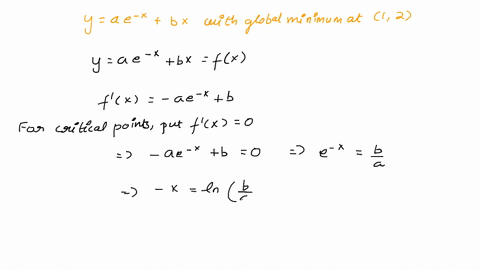 y = ae^{-x} + bx with global minimum at (1, 2)
y = ae^{-x} + bx = f(x)
f'(x) = -ae^{-x} + b
For critical points, put f'(x) = 0
=> -ae^{-x} + b = 0 => e^{-x} = b/a
=> -x = ln (b/